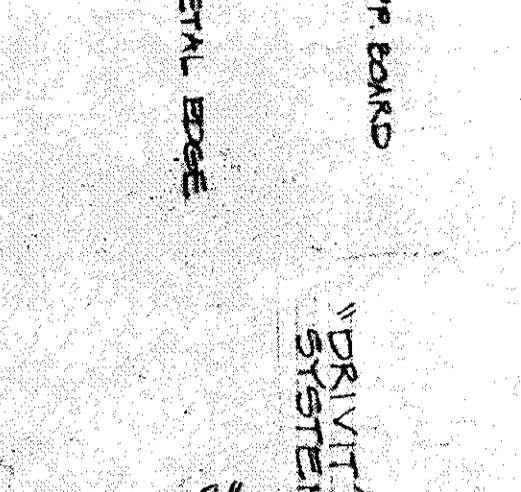 YP. BOARD
ETAL EDGE
"DRIVIT"
SYSTE